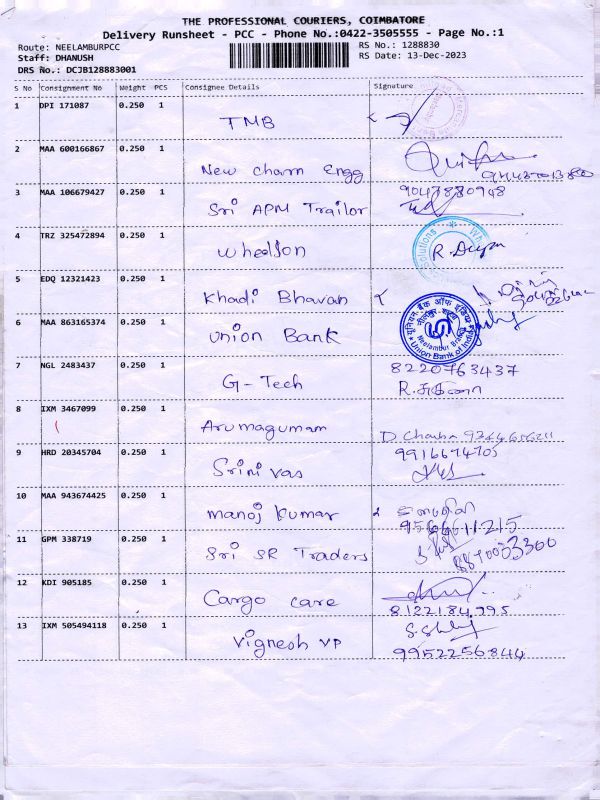 THE PROFESSIONAL COURIERS, COIMBATORE
Delivery Runsheet - PCC - Phone No.:0422-3505555 - Page No.:1
Route: NEELAMBURPCC
RS No.: 1288830
Staff: DHANUSH
RS Date: 13-Dec-2023
DRS No.: DCJB128883001
S No Consignment No Weight PCS Consignee Details Signature
1 DPI 171087 0.250 1
TMB
2 MAA 600166867 0.250 1
New charn Engg
3 MAA 106679427 0.250 1
9047880948
Sri APM Trailor
4 TRZ 325472894 0.250 1
Wheelson
Solutions
5 EDQ 12321423 0.250 1
Khadi Bhavan
6 MAA 863165374 0.250 1
Union Bank
यूनियन बैंक ऑफ इंडिया
Neelambur Branch
Union Bank of India
7 NGL 2483437 0.250 1
G-Tech
8220763437
8 IXM 3467099 0.250 1
Arumagumam
9 HRD 20345704 0.250 1
9916674705
Srinivas
10 MAA 943674425 0.250 1
manoj kumar
9566611215
11 GPM 338719 0.250 1
Sri SR Traders
12 KDI 905185 0.250 1
Cargo care
8122184995
13 IXM 505494118 0.250 1
Vignesh VP
9952256844